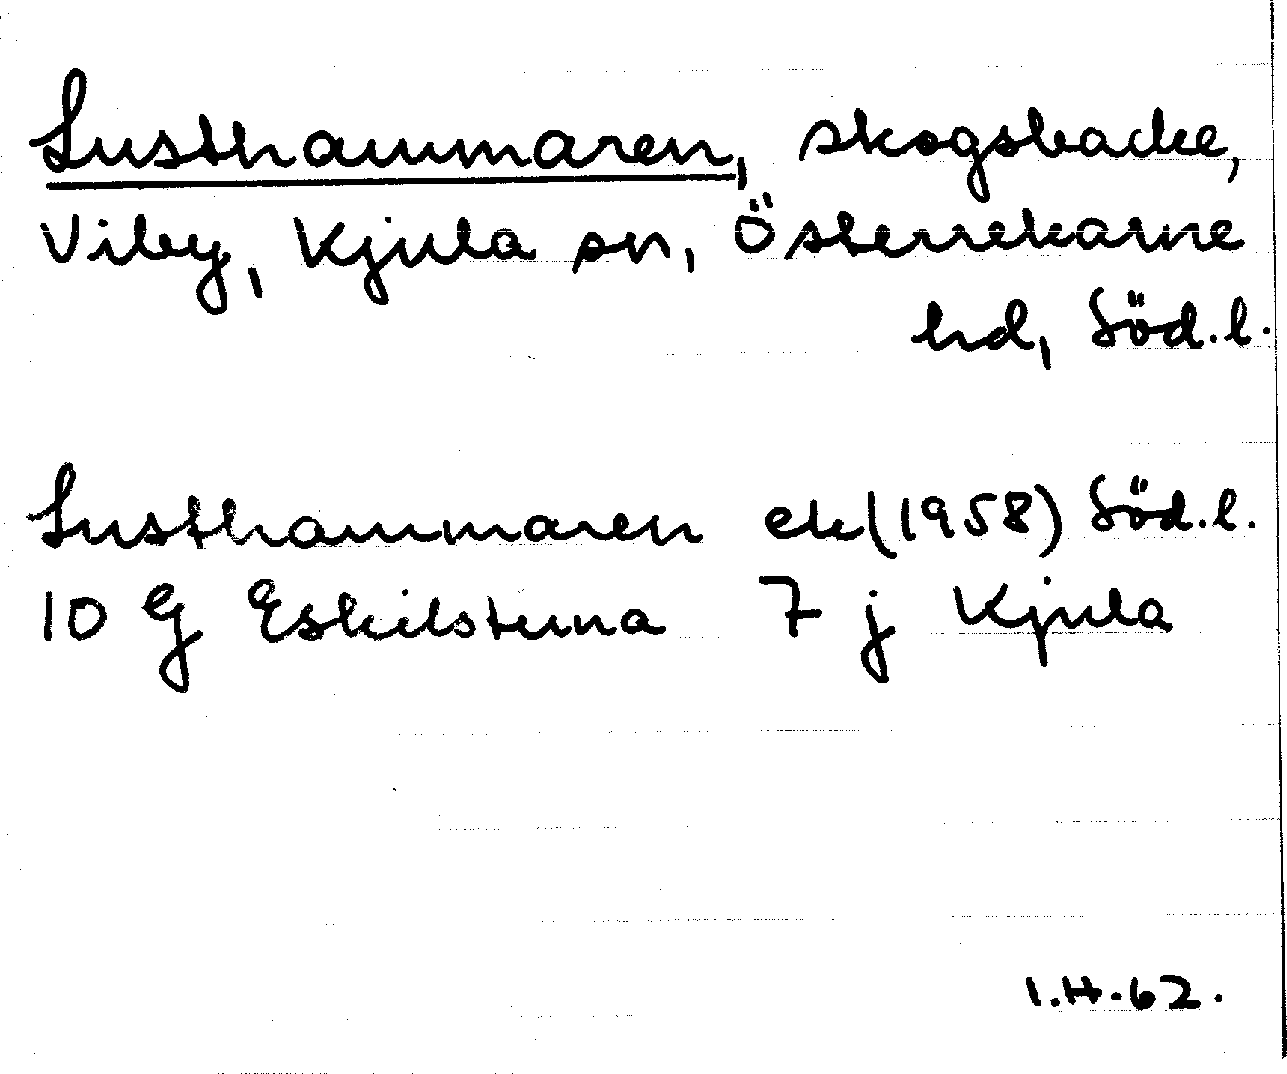 Lusthammaren, skogsbacke,
Viby, Kjula sn, Österrekarne
hd, Söd.l.
Lusthammaren ek (1958) Söd.l.
10 G Eskilstuna 7 j Kjula
I.H.62.